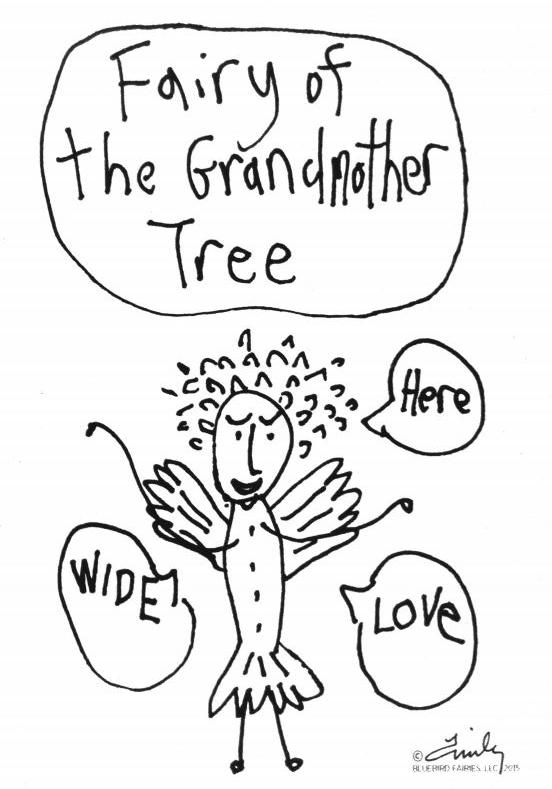 Fairy of
the Grandmother
Tree
Here
WIDE!
LOVe
© Emily
BLUEBIRD FAIRIES, LLC 2015